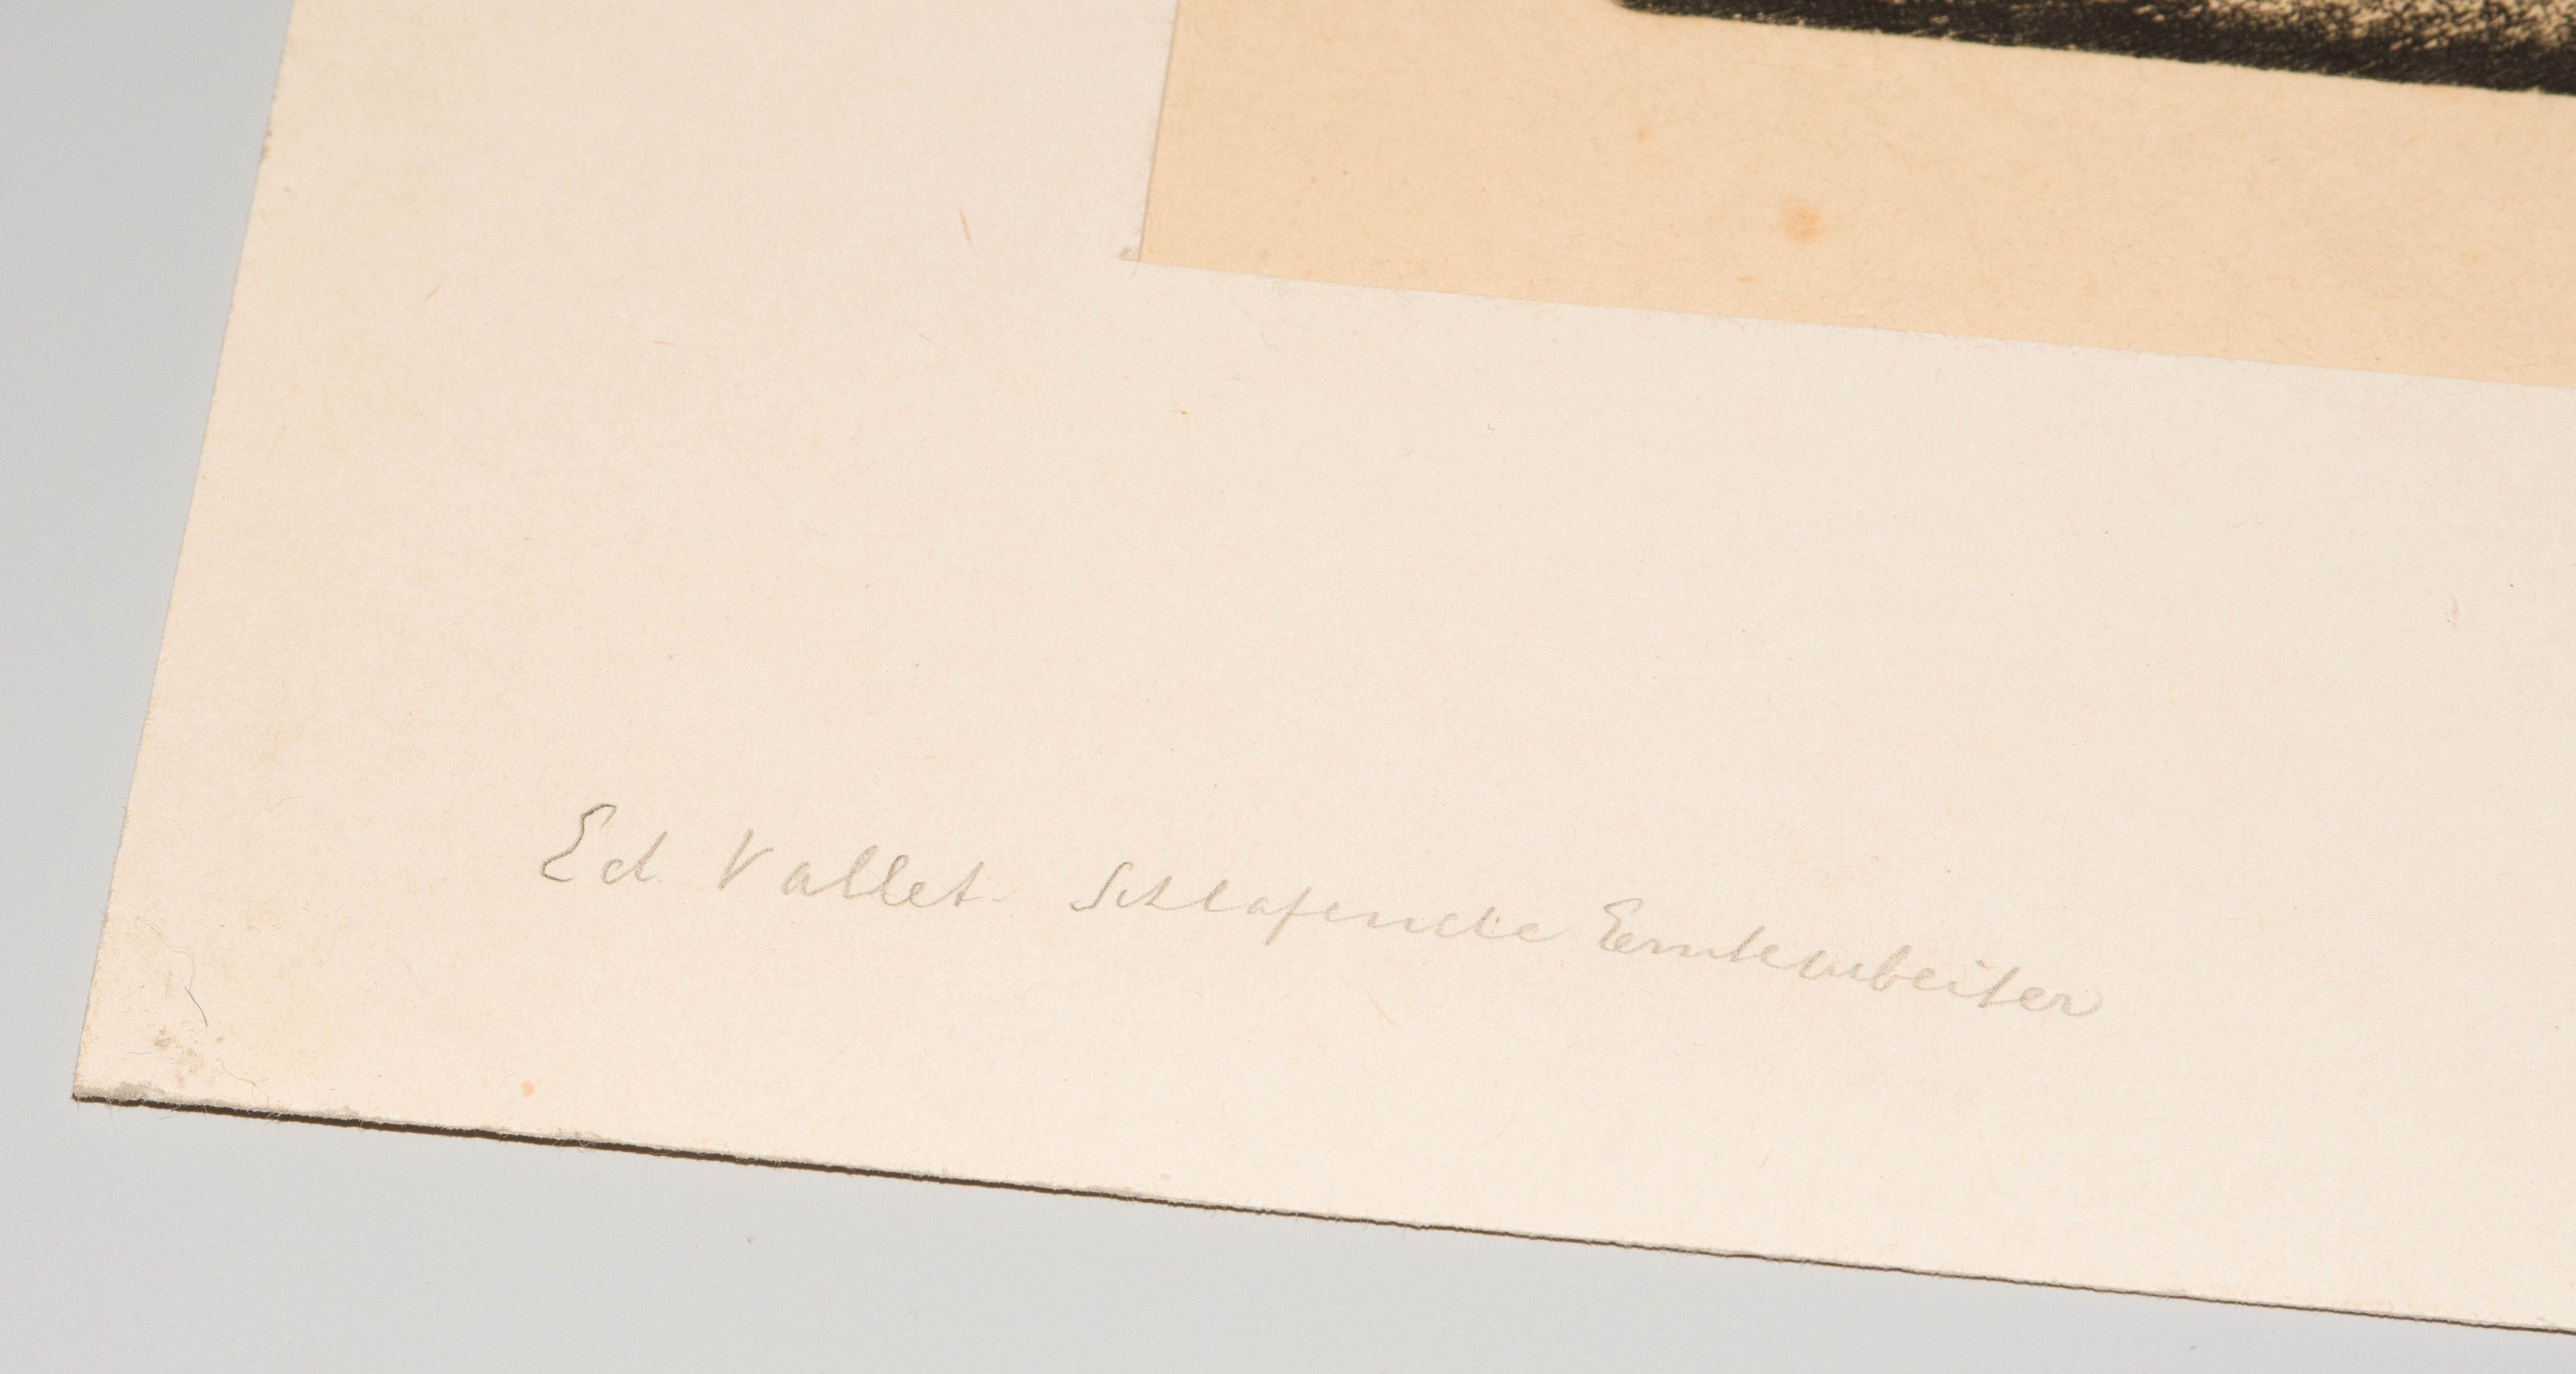 Ed Vallet. Schlafende Erntearbeiter